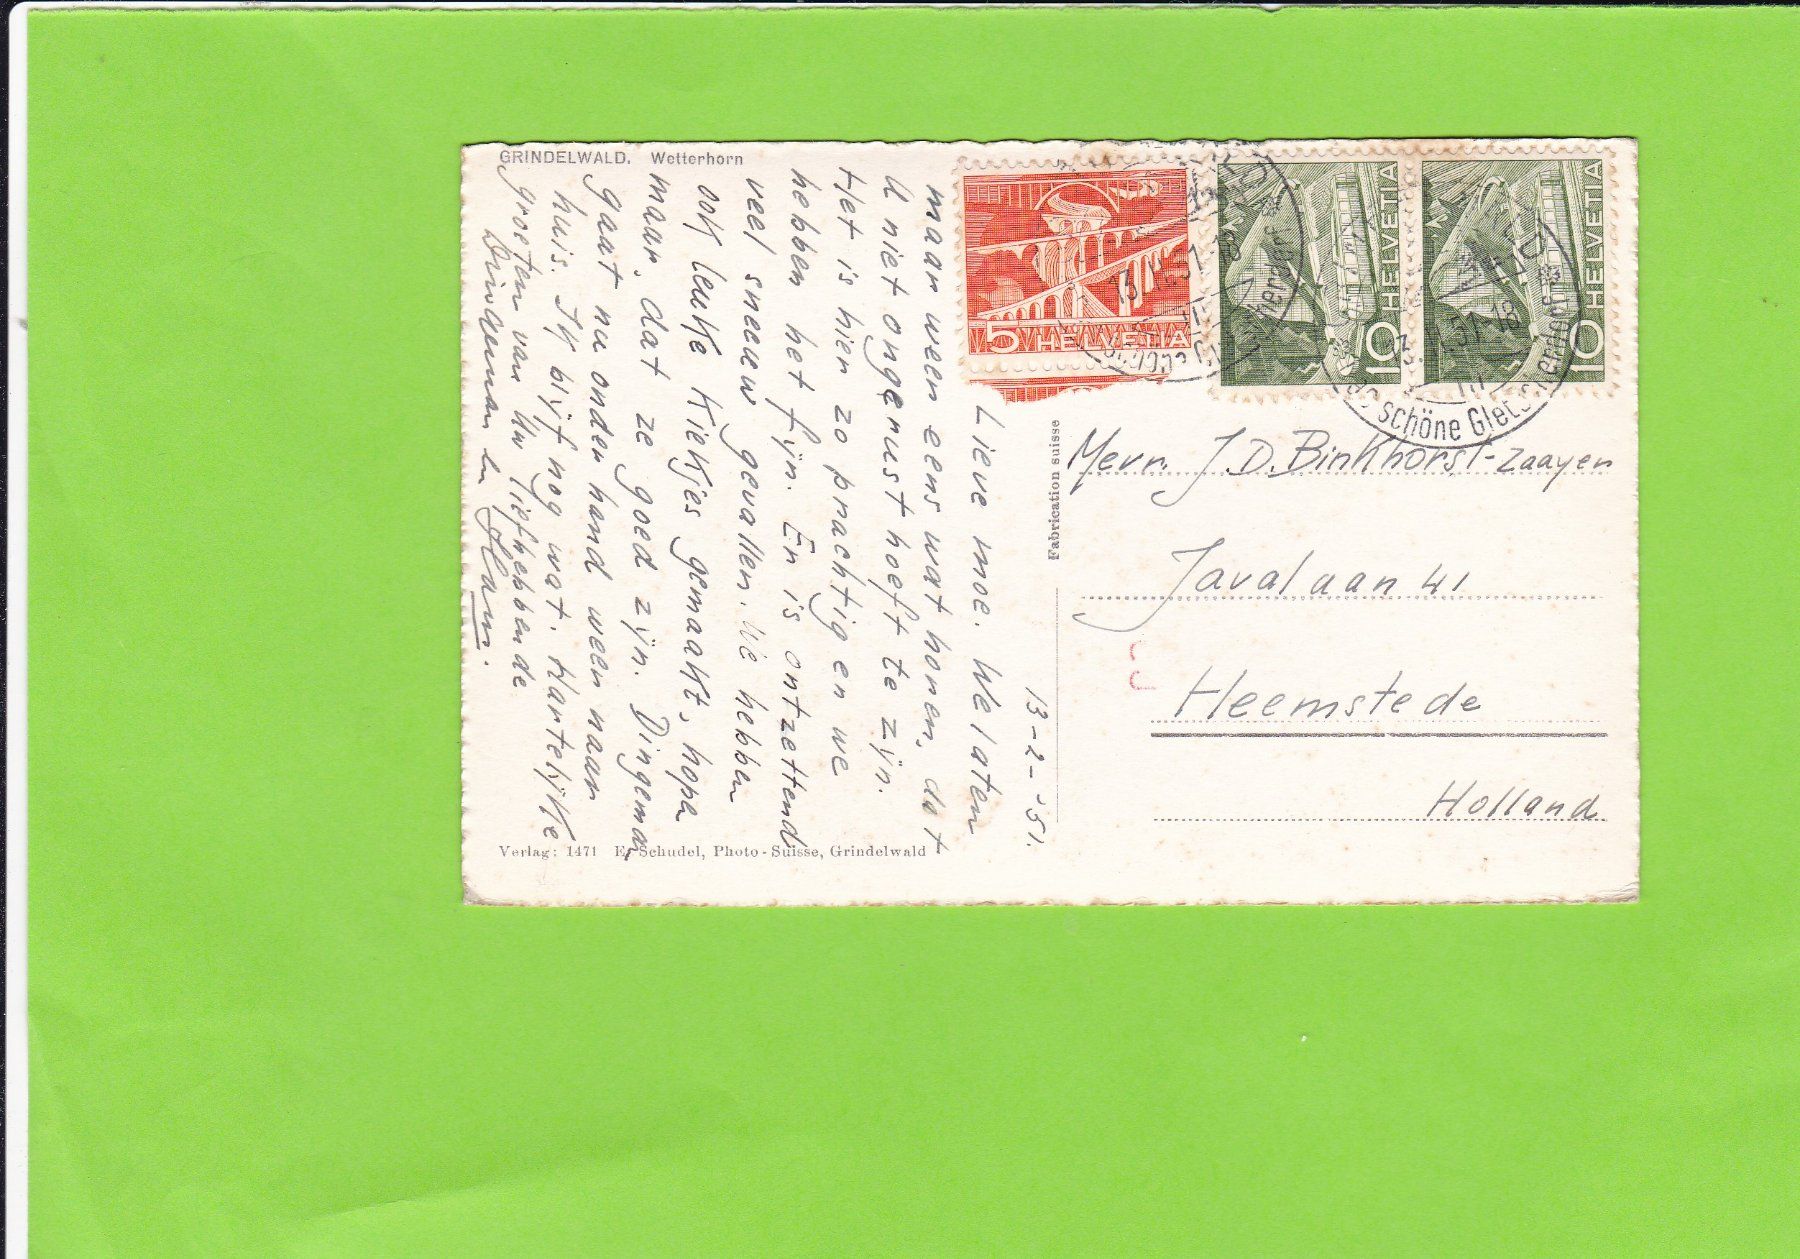 GRINDELWALD. Wetterhorn
13-2-'51.
Lieve moe. We laten
maar weer eens wat horen, dat
U niet ongerust hoeft te zijn.
Het is hier zo prachtig en we
hebben het fijn. Er is ontzettend
veel sneeuw gevallen. We hebben
ook leuke kiekjes gemaakt, hope
maar, dat ze goed zijn. Dingeman
gaat nu onder hand weer naar
huis. Ik blijf nog wat. Hartelijke
groeten van Uw liefhebbende
Dingeman en
Verlag: 1471 E. Schudel, Photo-Suisse, Grindelwald
Fabrication suisse
5 HELVETIA
10 HELVETIA
10 HELVETIA
13. II. 51-18
II. 51-18
schöne Gletscherdorf
Mevr. J. D. Binkhorst-Zaayen
Javalaan 41
Heemstede
Holland